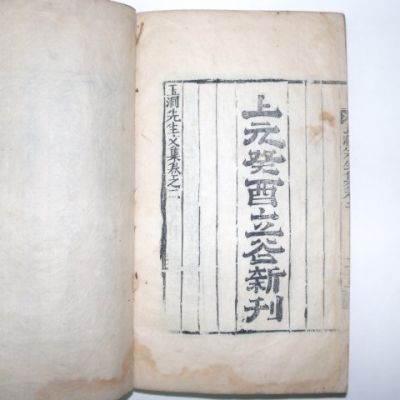 上元癸酉立谷新刊
玉澗先生文集卷之二